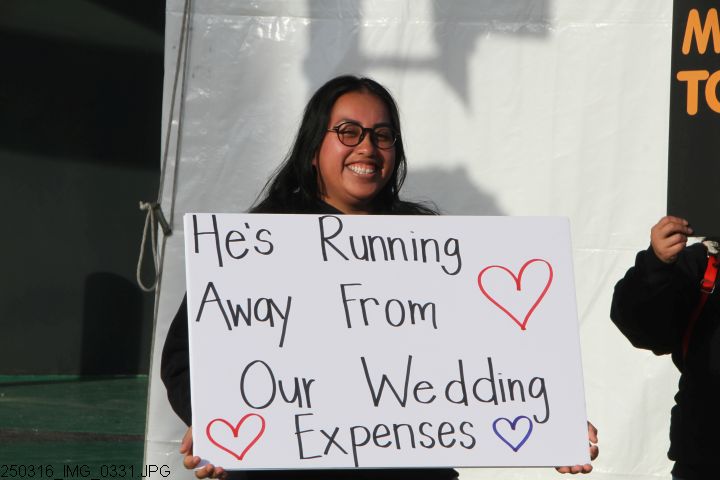 He's Running
Away From
Our Wedding
Expenses
M
TO
250316_IMG_0331.JPG